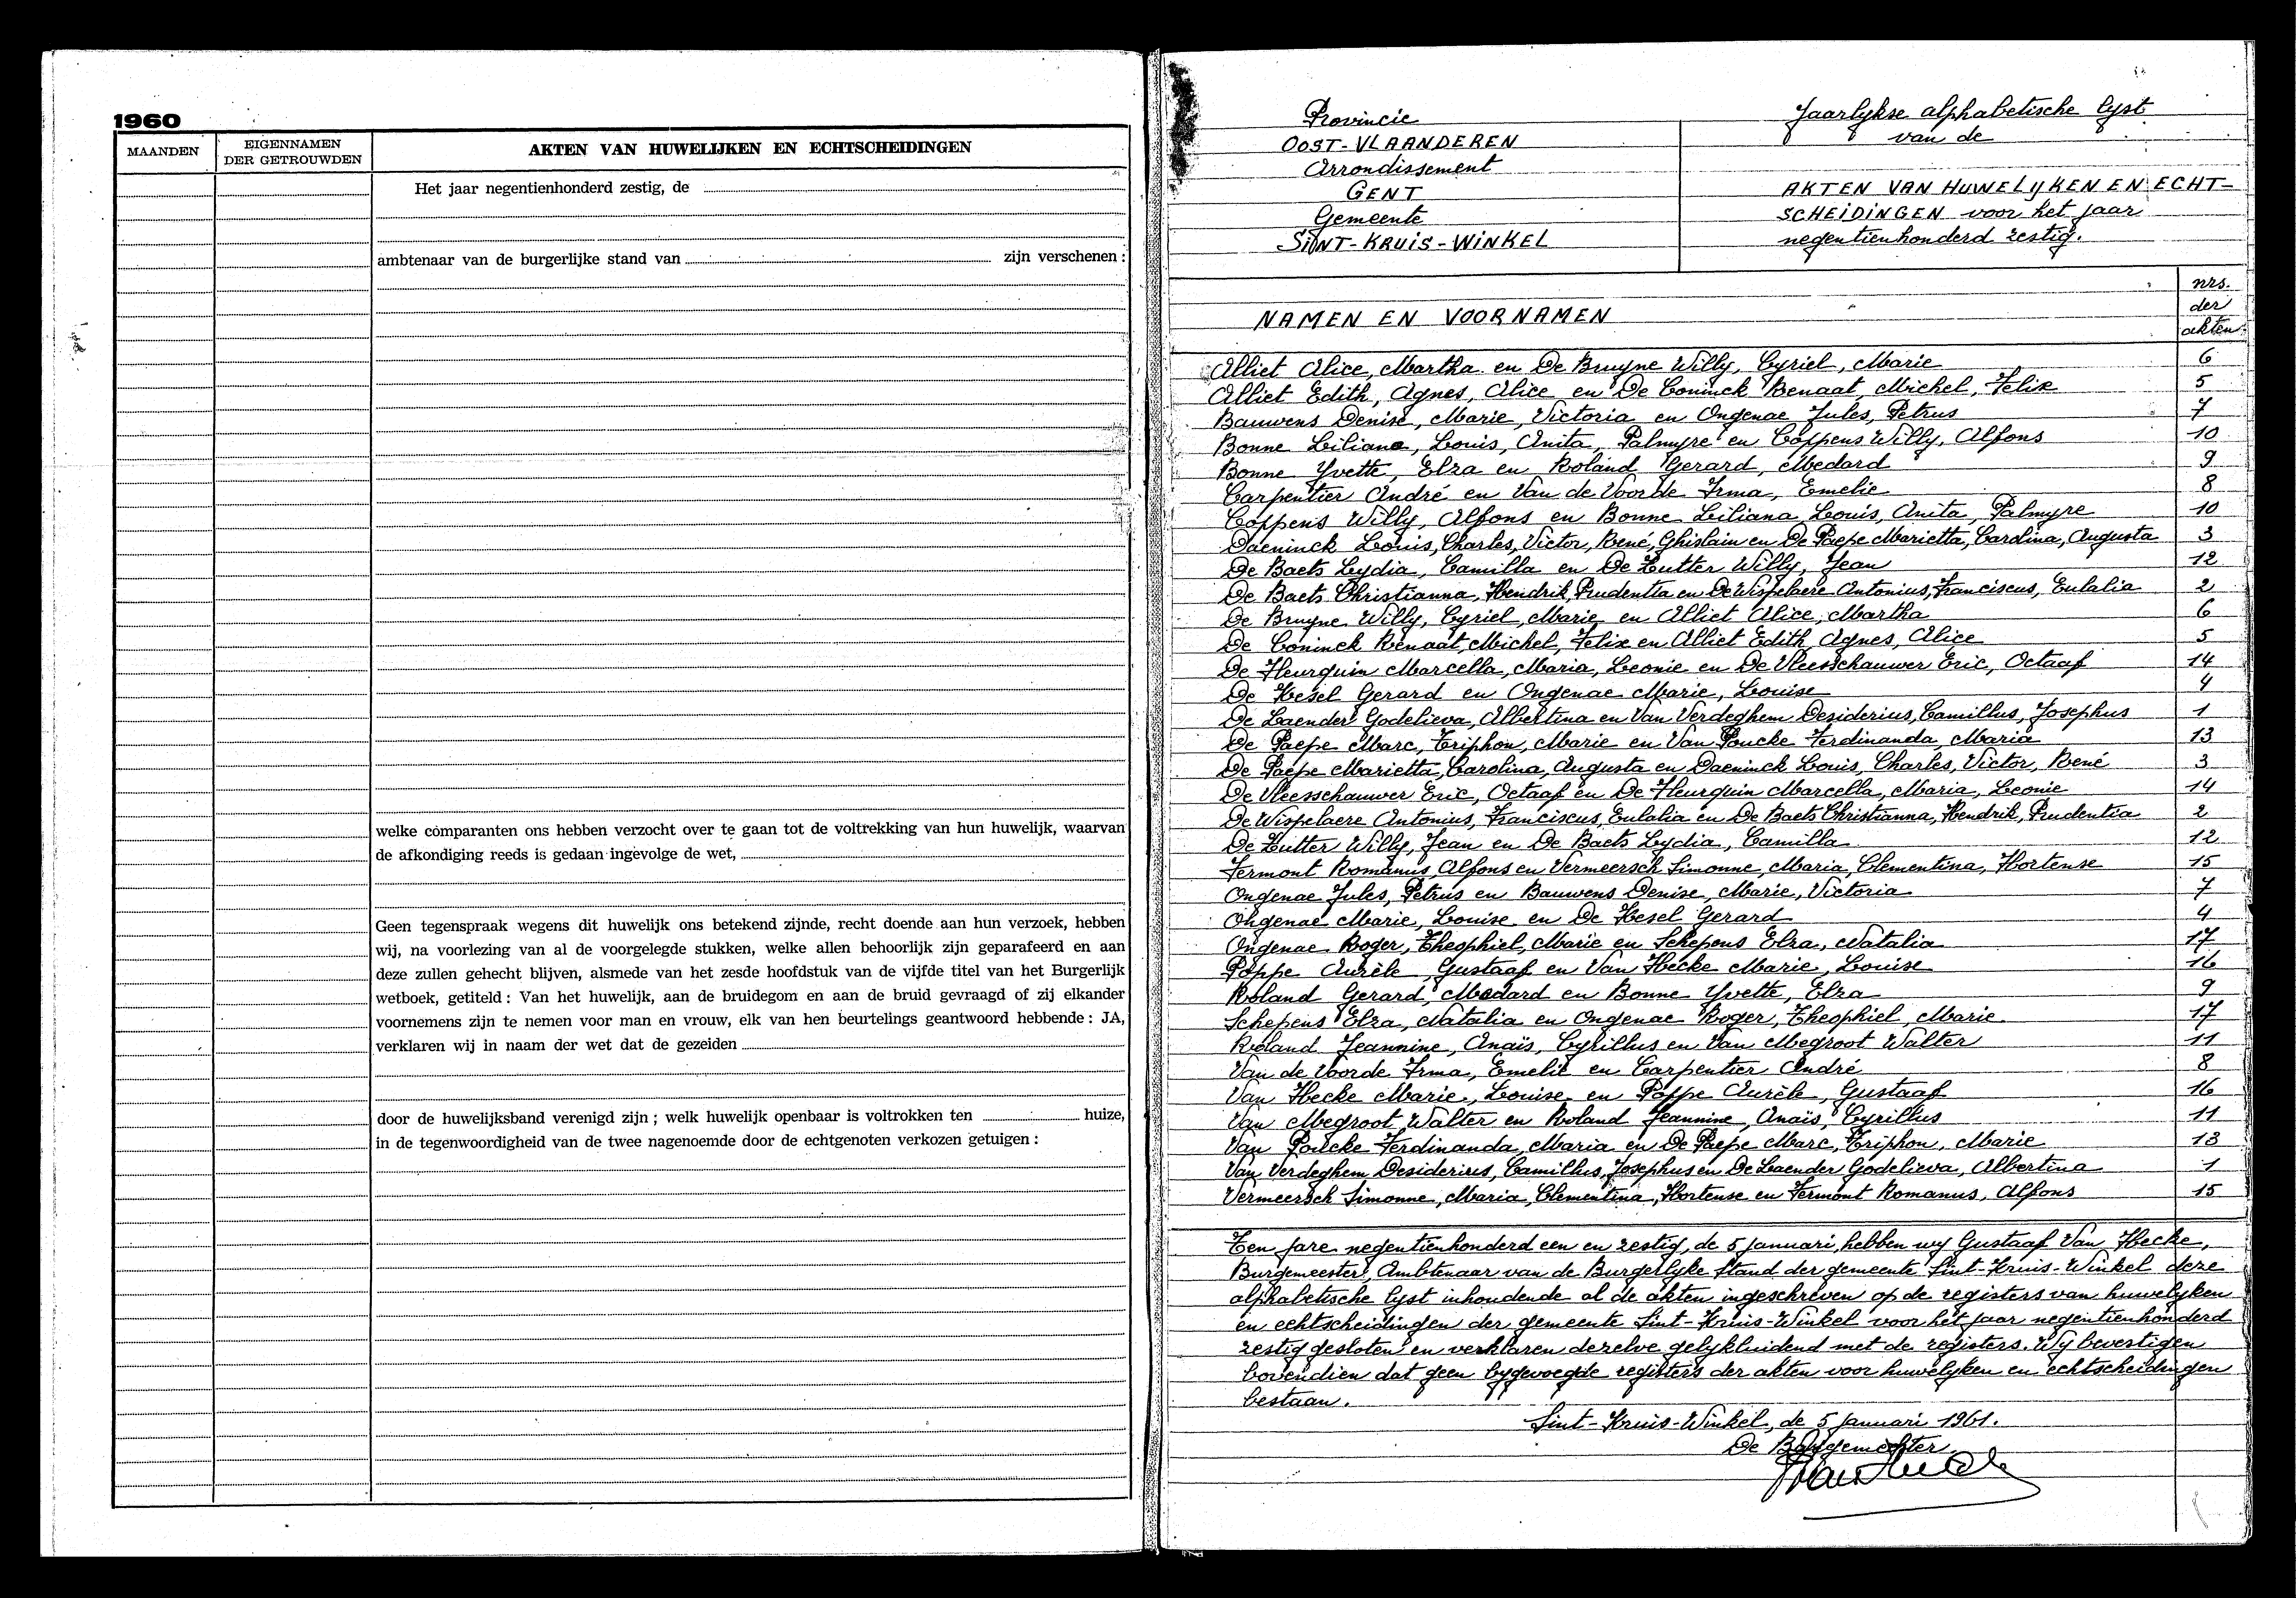 1960
MAANDEN
EIGENNAMEN
DER GETROUWDEN
AKTEN VAN HUWELIJKEN EN ECHTSCHEIDINGEN
Het jaar negentienhonderd zestig, de
ambtenaar van de burgerlijke stand van zijn verschenen :
welke comparanten ons hebben verzocht over te gaan tot de voltrekking van hun huwelijk, waarvan
de afkondiging reeds is gedaan ingevolge de wet,
Geen tegenspraak wegens dit huwelijk ons betekend zijnde, recht doende aan hun verzoek, hebben
wij, na voorlezing van al de voorgelegde stukken, welke allen behoorlijk zijn geparafeerd en aan
deze zullen gehecht blijven, alsmede van het zesde hoofdstuk van de vijfde titel van het Burgerlijk
wetboek, getiteld : Van het huwelijk, aan de bruidegom en aan de bruid gevraagd of zij elkander
voornemens zijn te nemen voor man en vrouw, elk van hen beurtelings geantwoord hebbende : JA,
verklaren wij in naam der wet dat de gezeiden
door de huwelijksband verenigd zijn ; welk huwelijk openbaar is voltrokken ten huize,
in de tegenwoordigheid van de twee nagenoemde door de echtgenoten verkozen getuigen :
Provincie
OOST-VLAANDEREN
Arrondissement
GENT
Gemeente
SINT-KRUIS-WINKEL
Jaarlykse alphabetische lyst
van de
AKTEN VAN HUWELYKEN EN ECHT-
SCHEIDINGEN voor het jaar
negentienhonderd zestig.
NAMEN EN VOORNAMEN
nrs.
der
akten.
Alliet Alice, Martha en De Bruyne Willy, Cyriel, Marie 6
Alliet Edith, Agnes, Alice en De Coninck Renaat, Michel, Felix 5
Bauwens Denise, Marie, Victoria en Ongenae Jules, Petrus 7
Bonne Liliane, Louis, Anita, Palmyre en Coppens Willy, Alfons 10
Bonne Yvette, Elza en Roland Gerard, Medard 9
Carpentier André en Van de Voorde Irma, Emelie 8
Coppens Willy, Alfons en Bonne Liliana, Louis, Anita, Palmyre 10
Daeninck Louis, Charles, Victor, René, Ghislain en De Paepe Marietta, Carolina, Augusta 3
De Baets Lydia, Camilla en De Zutter Willy, Jean 12
De Baets Christianna, Hendrik, Prudentia en De Wispelaere Antonius, Franciscus, Eulalia 2
De Bruyne Willy, Cyriel, Marie en Alliet Alice, Martha 6
De Coninck Renaat, Michel, Felix en Alliet Edith, Agnes, Alice 5
De Fleurquin Marcella, Maria, Leonie en De Vleesschauwer Eric, Octaaf 14
De Kesel Gerard en Ongenae Marie, Louise 4
De Laender Godelieva, Albertina en Van Verdeghem Desiderius, Camillus, Josephus 1
De Paepe Marc, Triphon, Marie en Van Poucke Ferdinanda, Maria 13
De Paepe Marietta, Carolina, Augusta en Daeninck Louis, Charles, Victor, René 3
De Vleesschauwer Eric, Octaaf en De Fleurquin Marcella, Maria, Leonie 14
De Wispelaere Antonius, Franciscus, Eulalia en De Baets Christianna, Hendrik, Prudentia 2
De Zutter Willy, Jean en De Baets Lydia, Camilla 12
Fermont Romanus, Alfons en Vermeersch Simonne, Maria, Clementina, Hortense 15
Ongenae Jules, Petrus en Bauwens Denise, Marie, Victoria 7
Ongenae Marie, Louise en De Kesel Gerard 4
Ongenae Roger, Theophiel, Marie en Schepens Elza, Natalia 17
Poppe Aurèle, Gustaaf en Van Hecke Marie, Louise 16
Roland Gerard, Medard en Bonne Yvette, Elza 9
Schepens Elza, Natalia en Ongenae Roger, Theophiel, Marie 17
Roland Jeannine, Anaïs, Cyrillus en Van Megroot Walter 11
Van de Voorde Irma, Emelie en Carpentier André 8
Van Hecke Marie, Louise en Poppe Aurèle, Gustaaf 16
Van Megroot Walter en Roland Jeannine, Anaïs, Cyrillus 11
Van Poucke Ferdinanda, Maria en De Paepe Marc, Triphon, Marie 13
Van Verdeghem Desiderius, Camillus, Josephus en De Laender Godelieva, Albertina 1
Vermeersch Simonne, Maria, Clementina, Hortense en Fermont Romanus, Alfons 15
Ten jare negentienhonderd een en zestig, de 5 januari, hebben wy Gustaaf Van Hecke,
Burgemeester, Ambtenaar van de Burgerlyke Stand der gemeente Sint-Kruis-Winkel deze
alphabetische lyst inhoudende al de akten ingeschreven op de registers van huwelyken
en echtscheidingen der gemeente Sint-Kruis-Winkel voor het jaar negentienhonderd
zestig gesloten en verklaren dezelve gelykluidend met de registers. Wy bevestigen
bovendien dat geen bygevoegde registers der akten voor huwelyken en echtscheidingen
bestaan.
Sint-Kruis-Winkel, de 5 januari 1961.
De Burgemeester